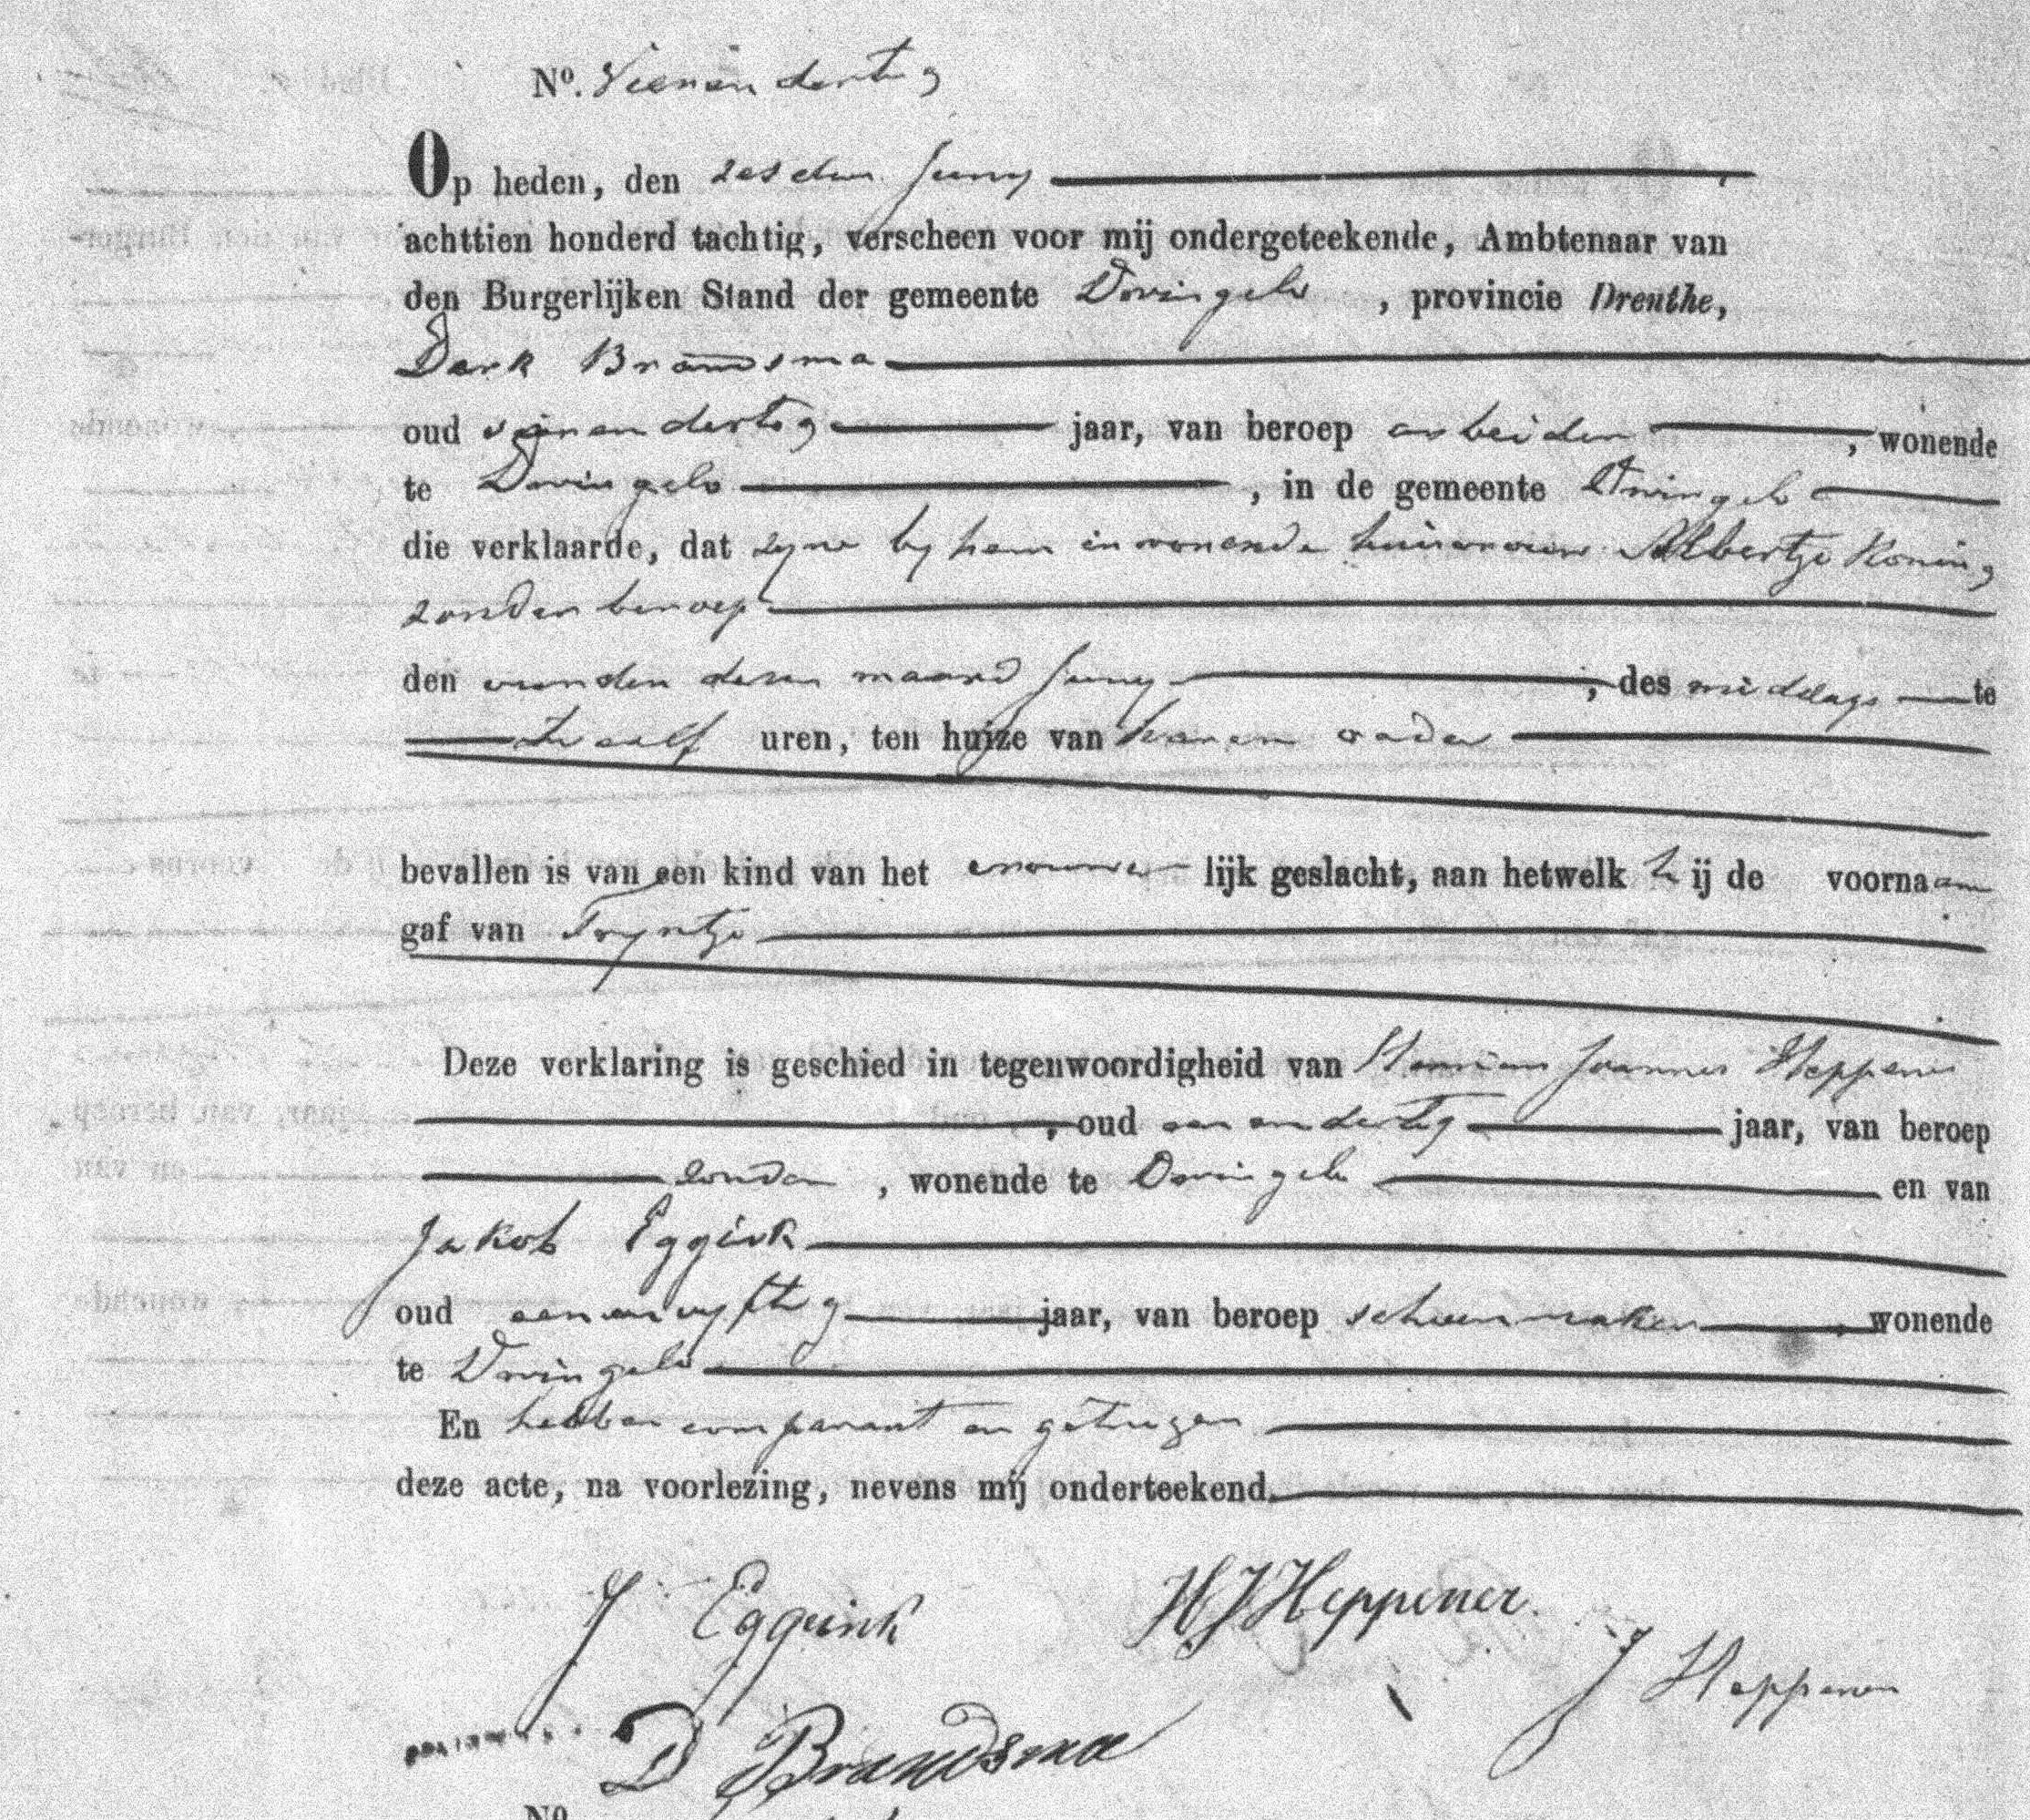 Nº. Vierendertig
Op heden, den zesden Juny
achttien honderd tachtig, verscheen voor mij ondergeteekende, Ambtenaar van
den Burgerlijken Stand der gemeente Dwingelo, provincie Drenthe,
Derk Brandsma
oud vierendertig jaar, van beroep arbeider, wonende
te Dwingelo, in de gemeente Dwingelo
die verklaarde, dat zyne by hem inwonende huisvrouw Albertje Koning
zonder beroep
den vierden dezer maand Juny, des middags te
twaalf uren, ten huize van haren vader
bevallen is van een kind van het vrouwelijk geslacht, aan hetwelk hij de voornaam
gaf van Tryntje
Deze verklaring is geschied in tegenwoordigheid van Joannes Heppener
, oud eenendertig jaar, van beroep
zonder, wonende te Dwingelo en van
Jakob Eggink
oud eenenvyftig jaar, van beroep schoenmaker, wonende
te Dwingelo
En hebben comparant en getuigen
deze acte, na voorlezing, nevens mij onderteekend.
J Eggink HJHeppener.
J Heppener
D Brandsma
Nº